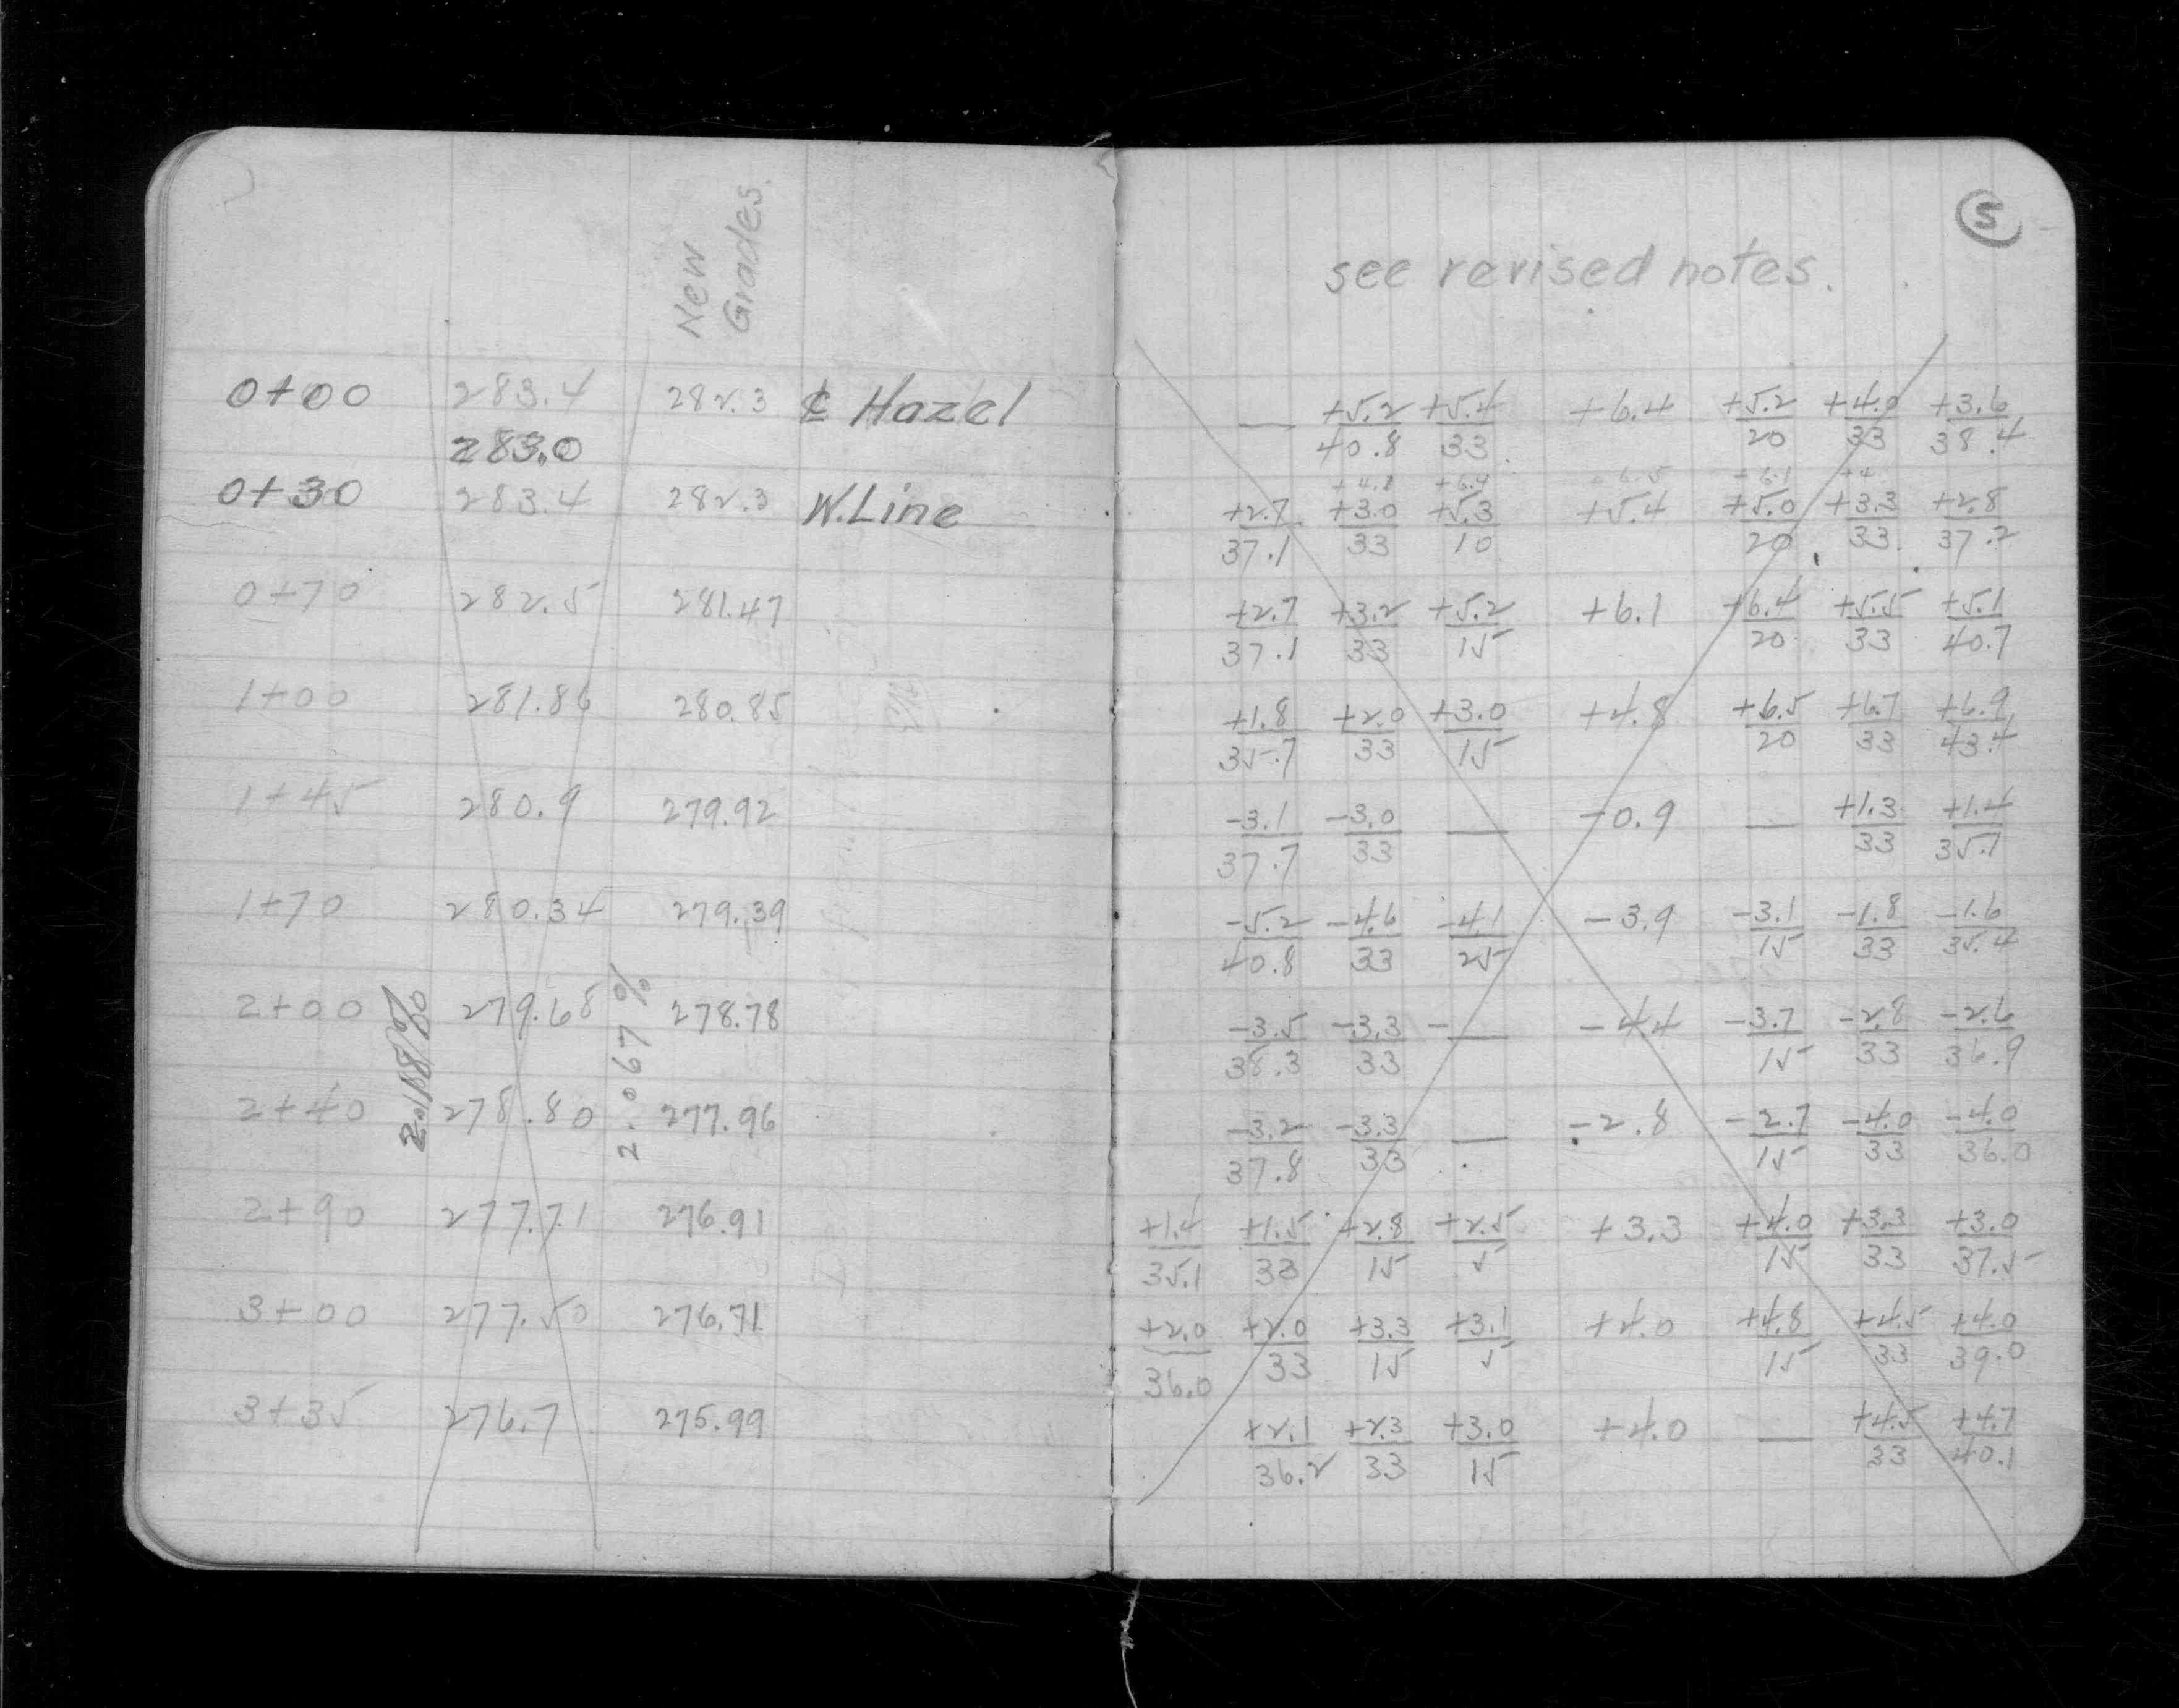 New
Grades.
0+00 283.4 282.3 ℄ Hazel
283.0
0+30 283.4 282.3 W. Line
0+70 282.5 281.47
1+00 281.86 280.85
1+45 280.9 279.92
1+70 280.34 279.39
2+00 279.68 278.78
2+40 278.80 277.96
2+90 277.71 276.91
3+00 277.50 276.71
3+35 276.7 275.99
2.067%
5
see revised notes.
— +5.2 +5.4 +6.4 +5.2 +4.0 +3.6
40.8 33 20 33 38.4
+6.4 +6.5 +6.1
+2.7 +3.0 +5.3 +5.4 +5.0 +3.3 +2.8
37.1 33 10 20 33 37.2
+2.7 +3.2 +5.2 +6.1 +6.4 +5.5 +5.1
37.1 33 15 20 33 40.7
+1.8 +2.0 +3.0 +4.8 +6.5 +6.7 +6.9
35.7 33 15 20 33 43.4
-3.1 -3.0 — -0.9 — +1.3 +1.4
37.7 33 33 35.7
-5.2 -4.6 -4.1 -3.9 -3.1 -1.8 -1.6
40.8 33 25 15 33 35.4
-3.5 -3.3 - — -4.4 -3.7 -2.8 -2.6
38.3 33 15 33 36.9
-3.2 -3.3 — -2.8 -2.7 -4.0 -4.0
37.8 33 15 33 36.0
+1.4 +1.5 +2.8 +2.5 +3.3 +4.0 +3.3 +3.0
35.1 33 15 5 15 33 37.5
+2.0 +2.0 +3.3 +3.1 +4.0 +4.8 +4.5 +4.0
36.0 33 15 5 15 33 39.0
+2.1 +2.3 +3.0 +4.0 — +4.5 +4.7
36.2 33 15 33 40.1